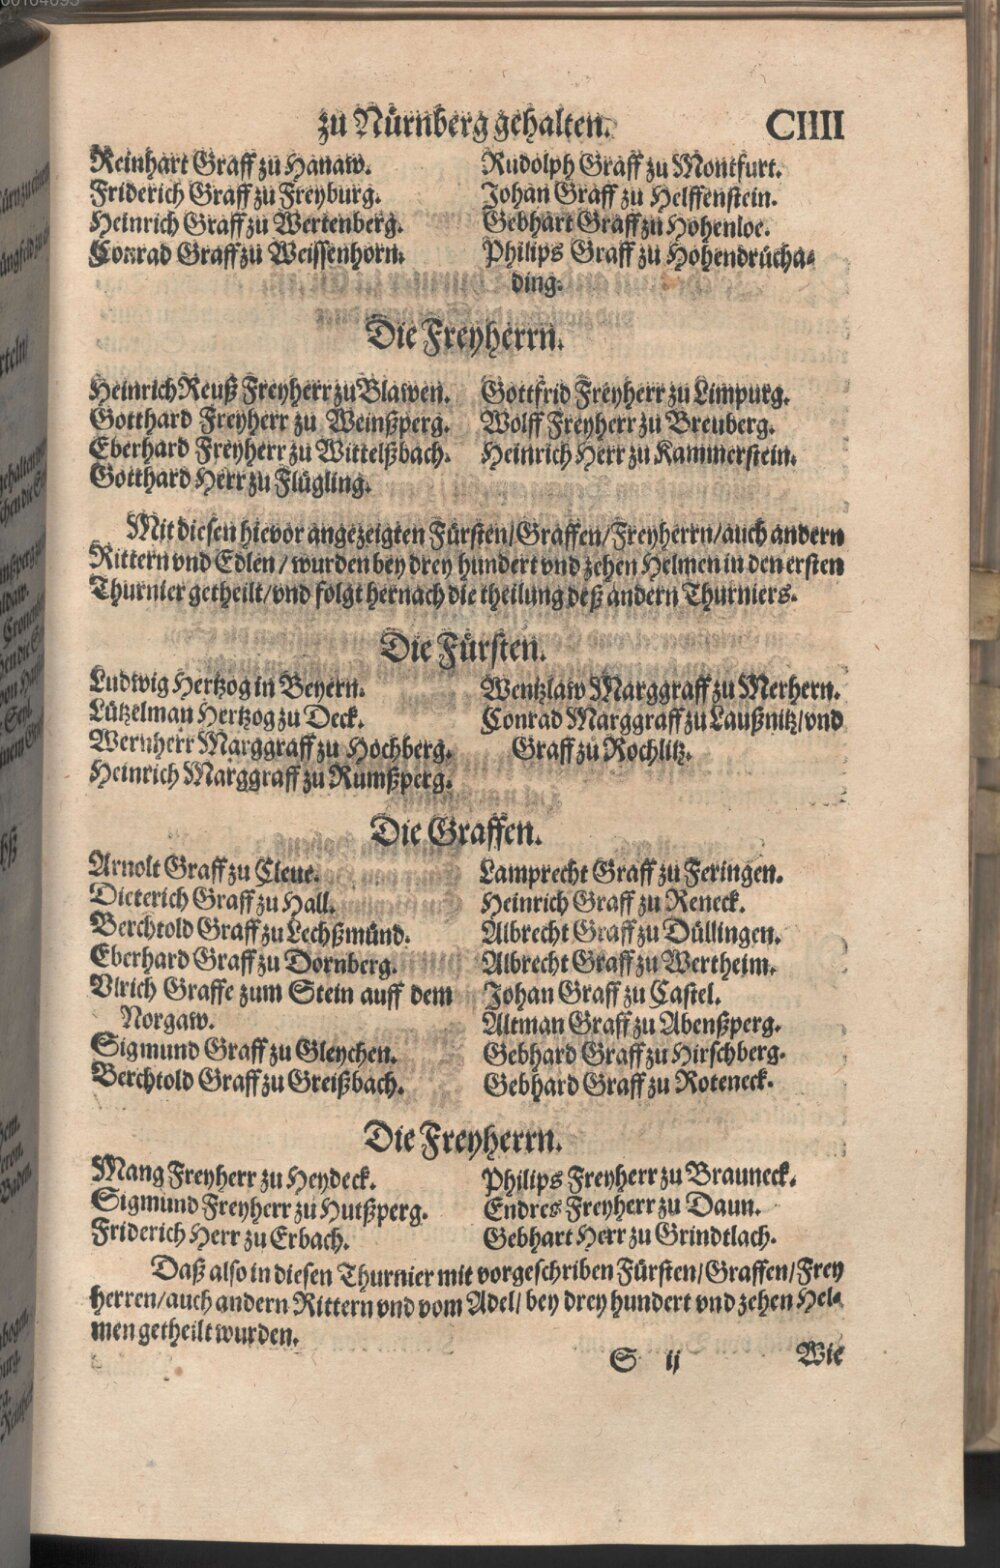 zu Nürnberg gehalten. CIIII
Reinhart Graff zu Hanaw.
Friderich Graff zu Freyburg.
Heinrich Graff zu Wertenberg.
Conrad Graff zu Weissenhorn.
Rudolph Graff zu Montfurt.
Johan Graff zu Helffenstein.
Gebhart Graff zu Hohenloe.
Philips Graff zu Hohendrücha-
ding.
Die Freyherrn.
Heinrich Reuß Freyherr zu Blawen.
Gotthard Freyherr zu Weinßperg.
Eberhard Freyherr zu Wittelßbach.
Gotthard Herr zu Flügling.
Gottfrid Freyherr zu Limpurg.
Wolff Freyherr zu Breuberg.
Heinrich Herr zu Kammerstein.
Mit diesen hievor angezeigten Fürsten/Graffen/Freyherrn/auch andern
Rittern vnd Edlen/ wurden bey drey hundert vnd zehen Helmen in den ersten
Thurnier getheilt/vnd folgt hernach die theilung deß andern Thurniers.
Die Fürsten.
Ludwig Hertzog in Beyern.
Lützelman Hertzog zu Deck.
Wernherr Marggraff zu Hochberg.
Heinrich Marggraff zu Rumßperg.
Wentzlaw Marggraff zu Merhern.
Conrad Marggraff zu Laußnitz/vnd
Graff zu Rochlitz.
Die Graffen.
Arnolt Graff zu Cleue.
Dieterich Graff zu Hall.
Berchtold Graff zu Lechßmünd.
Eberhard Graff zu Dornberg.
Vlrich Graffe zum Stein auff dem
Norgaw.
Sigmund Graff zu Gleychen.
Berchtold Graff zu Greißbach.
Lamprecht Graff zu Feringen.
Heinrich Graff zu Reneck.
Albrecht Graff zu Düllingen.
Albrecht Graff zu Wertheim.
Johan Graff zu Castel.
Altman Graff zu Abenßperg.
Gebhard Graff zu Hirschberg.
Gebhard Graff zu Roteneck.
Die Freyherrn.
Mang Freyherr zu Heydeck.
Sigmund Freyherr zu Hutßperg.
Friderich Herr zu Erbach.
Philips Freyherr zu Brauneck.
Endres Freyherr zu Daun.
Gebhart Herr zu Grindtlach.
Daß also in diesen Thurnier mit vorgeschriben Fürsten/Graffen/Frey
herren/auch andern Rittern vnd vom Adel/ bey drey hundert vnd zehen Hel-
men getheilt wurden.
S ij Wie